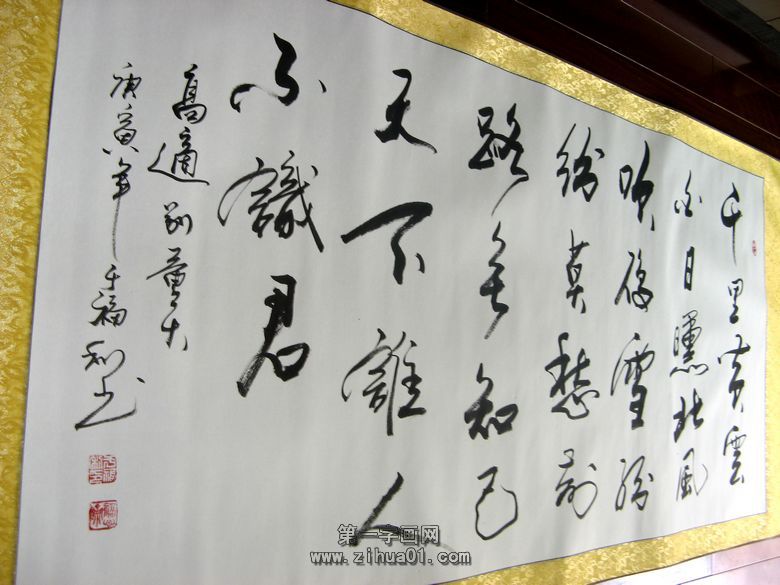 千里黄雲
白日曛北風
吹雁雪紛
紛莫愁前
路無知己
天下誰人
不識君
高適別董大
庚寅年 福利书
第一字画网
www.zihua01.com